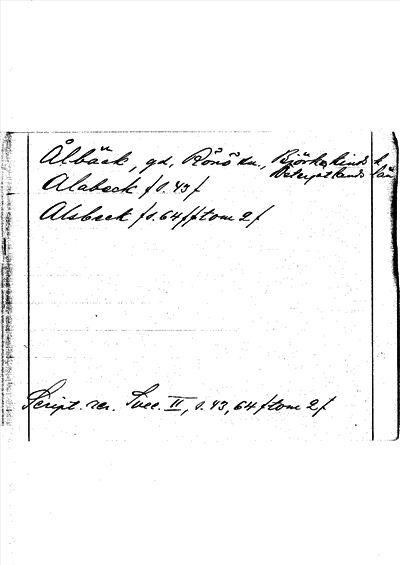 Ålbäck, gd, Rönö sn., Björkekinds h
Östergötlands län
Alabeck / s. 43 /
Alsbeck / s. 64 ff tom 2 /
Script. rer. Svec. II, s. 43, 64 / tom 2 /